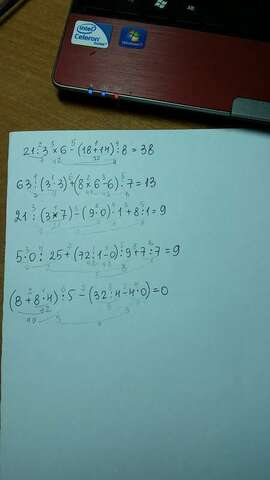 intel
Celeron
inside
Windows 7
21:3×6-(18+14):8=38
63:(3·3)+(8×6-6):7=13
21:(3×7)-(9·0):1+8:1=9
5·0:25+(72:1-0):9+7:7=9
(8+8·4):5-(32:4-4·0)=0